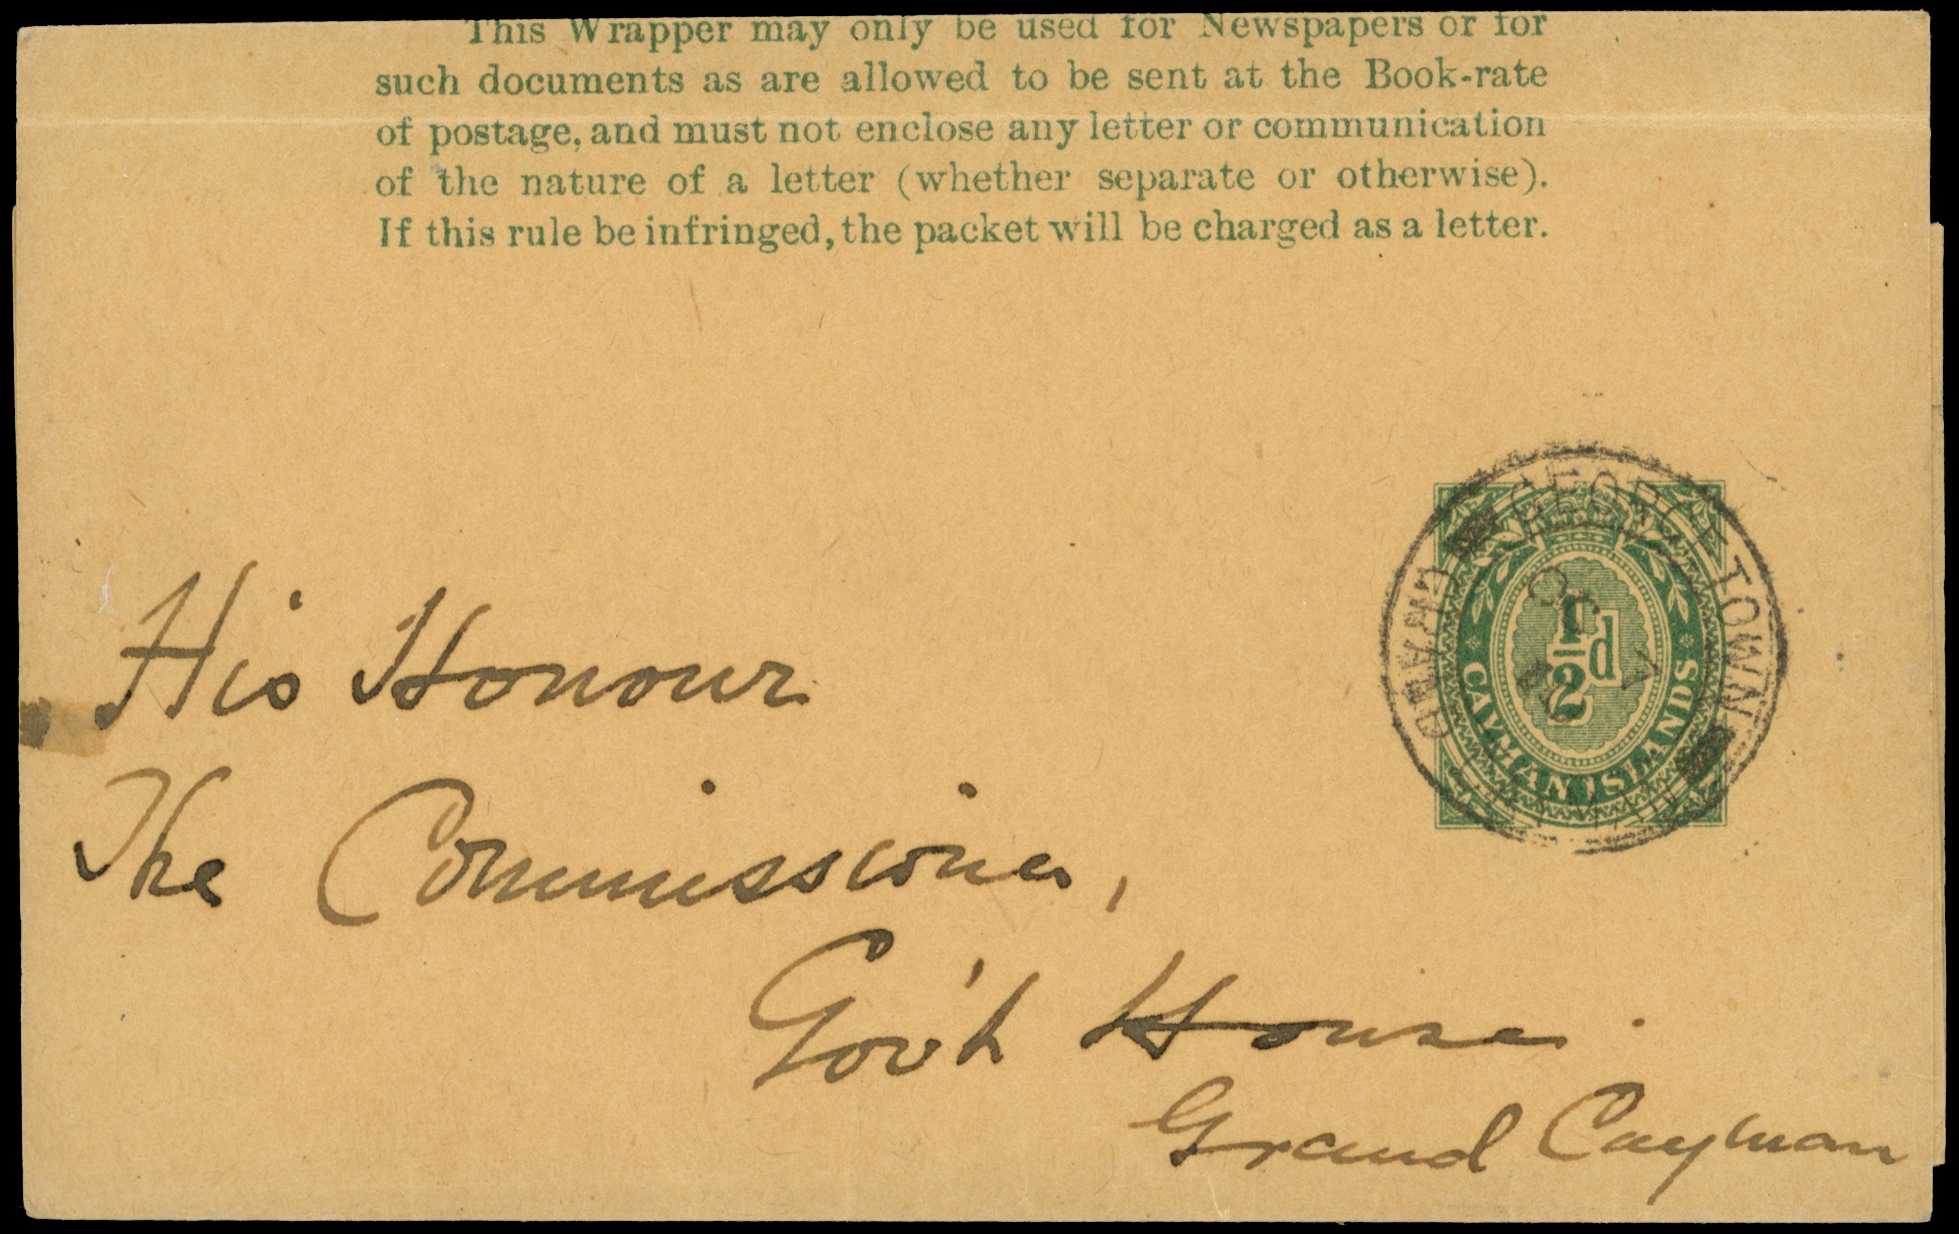 This Wrapper may only be used for Newspapers or for
such documents as are allowed to be sent at the Book-rate
of postage, and must not enclose any letter or communication
of the nature of a letter (whether separate or otherwise).
If this rule be infringed, the packet will be charged as a letter.
GEORGE TOWN
GRAND CAYMAN
1/2d
CAYMAN ISLANDS
His Honour
The Commissioner,
Gov't House.
Grand Cayman